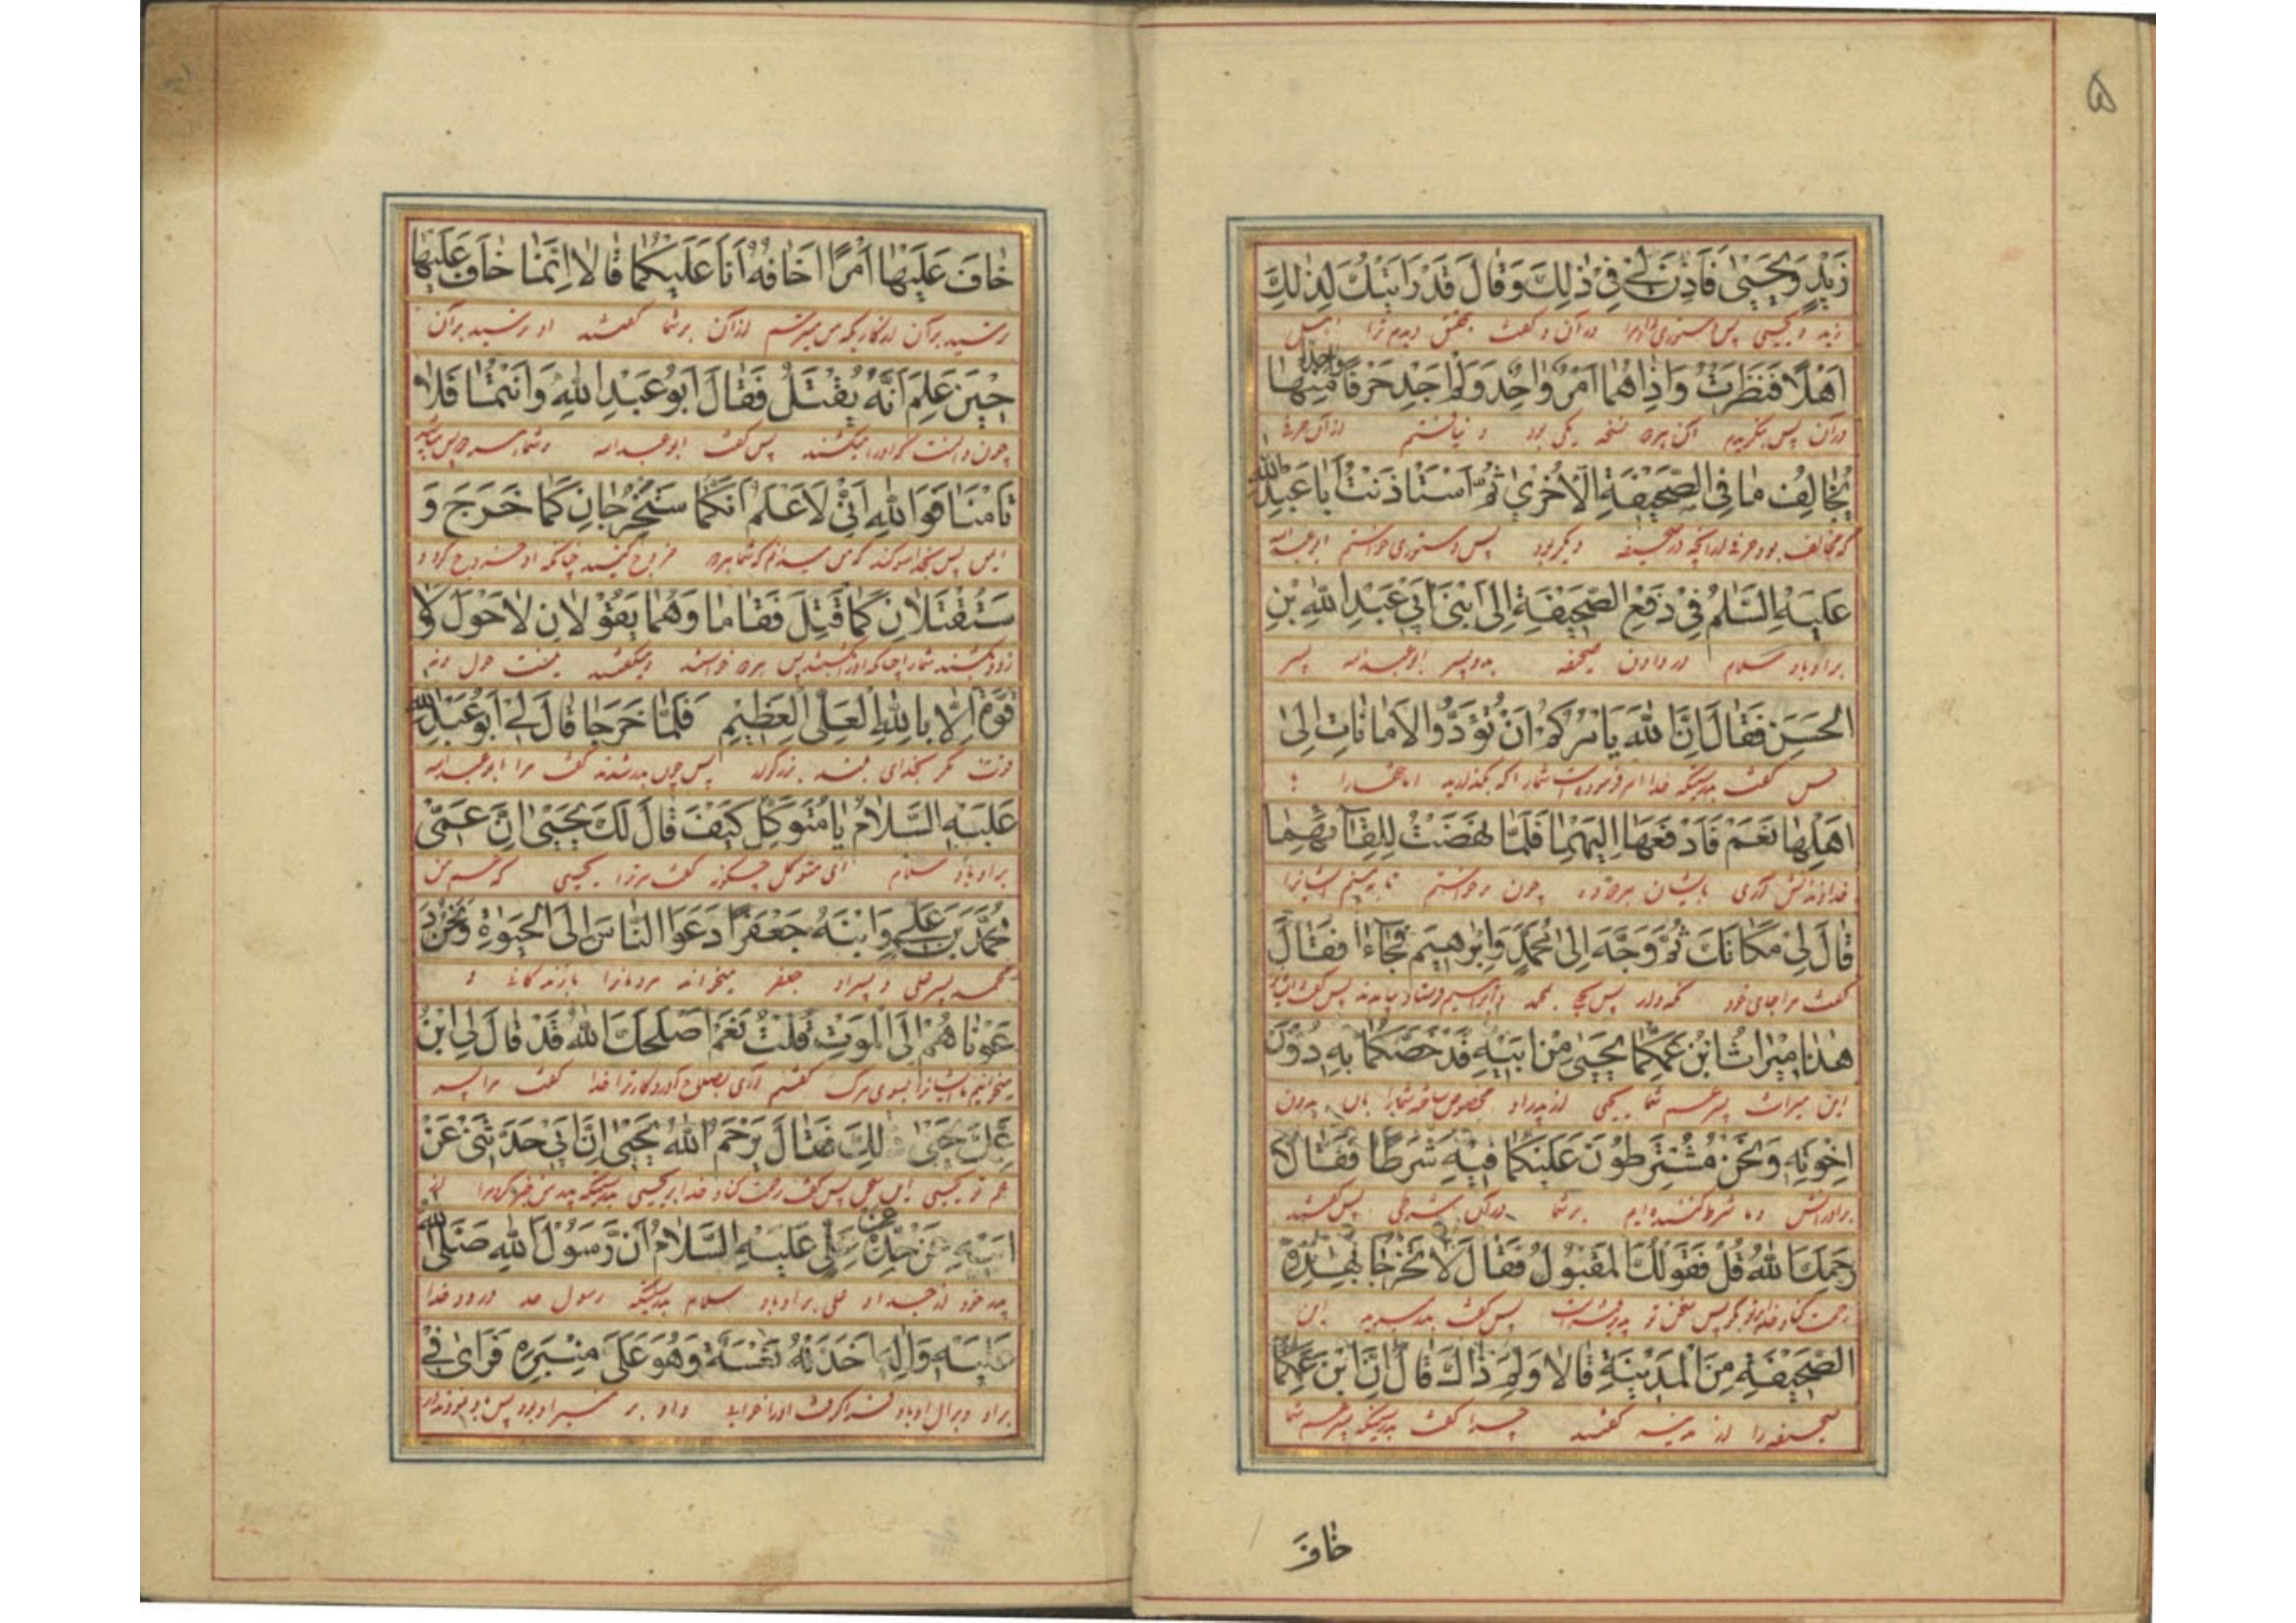 ۵
زَيْدٍ وَيَحْيَىٰ فَاَذِنَ لِي فِي ذٰلِكَ وَقَالَ قَدْ رَاَيْتُكَ لِذٰلِكَ
زید و یحیی پس دستوری داد مرا در آن و گفت بتحقیق دیدم ترا اهل
اَهْلًا فَنَظَرْتُ وَاِذَا هُمَا اَمْرٌ وَاحِدٌ وَلَمْ اَجِدْ حَرْفًا مِنْهَا
در آن پس نگریدم آن هر دو نسخه یکی بود و نیافتم از آن حرف
يُخَالِفُ مَا فِي الصَّحِيفَةِ الْاُخْرىٰ ثُمَّ اسْتَأْذَنْتُ اَبَا عَبْدِ اللهِ
که مخالف بود حرف از آنچه در صحیفه دیگر بود پس دستوری خواستم ابو عبدالله
عَلَيْهِ السَّلٰمُ فِي دَفْعِ الصَّحِيفَةِ اِلَى ابْنَيْ اَبِي عَبْدِ اللهِ بْنِ
بر او باد سلام در دادن صحیفه بدو پسر ابو عبدالله پسر
الْحَسَنِ فَقَالَ اِنَّ اللهَ يَاْمُرُكُمْ اَنْ تُؤَدُّوا الْاَمَانَاتِ اِلَىٰ
حسن گفت بدرستیکه خدا امر فرموده است شما را که بگذارید امانتها را با
اَهْلِهَا نَعَمْ فَادْفَعْهَا اِلَيْهِمَا فَلَمَّا نَهَضْتُ لِلِقَائِهِمَا
خداوندانش آری بایشان هر دو ده چون برخواستم تا به بینم ایشانرا
قَالَ لِي مَكَانَكَ ثُمَّ وَجَّهَ اِلَىٰ مُحَمَّدٍ وَاِبْرٰهِيمَ فَجَاءَا فَقَالَ
گفت مرا جای خود نگه دار پس محمد و ابراهیم فرستاد بیامدند پس گفت
هٰذَا مِيْرَاثُ ابْنِ عَمِّكُمَا يَحْيَىٰ مِنْ اَبِيهِ قَدْ خَصَّكُمَا بِهِ دُوْنَ
این میراث پسر عم شما یحیی از پدر او مخصوص ساخته شما را بآن بدون
اِخْوَتِهِ وَنَحْنُ مُشْتَرِطُونَ عَلَيْكُمَا فِيْهِ شَرْطًا فَقَالَا
برادرانش و ما شرط کننده ایم بر شما در آن شرطی پس گفتند
رَحِمَكَ اللهُ قُلْ فَقَوْلُكَ الْمَقْبُوْلُ فَقَالَ لَا تَخْرُجَا بِهٰذِهِ
رحمت کناد خدا بر تو بگو پس سخن تو پذیرفته است پس گفت بیرون مبرید این
الصَّحِيفَةِ مِنَ الْمَدِيْنَةِ قَالَا وَلِمَ ذَاكَ قَالَ اِنَّ ابْنَ عَمِّكُمَا
صحیفه را از مدینه گفتند چرا گفت بدرستیکه پسر عم شما
خَافَ
خَافَ عَلَيْهَا اَمْرًا اَخَافُهُ اَنَا عَلَيْكُمَا قَالَا اِنَّمَا خَافَ عَلَيْهَا
ترسید بر آن از کاریکه من میترسم از آن بر شما گفتند او ترسید بر آن
حِيْنَ عَلِمَ اَنَّهُ يُقْتَلُ فَقَالَ اَبُوْ عَبْدِ اللهِ وَاَنْتُمَا فَلَا
چون دانست که او را میکشند پس گفت ابو عبدالله و شما
تَاْمَنَا فَوَاللهِ اِنِّي لَاَعْلَمُ اَنَّكُمَا سَتَخْرُجَانِ كَمَا خَرَجَ وَ
ایمن پس بخدا سوگند که من میدانم که شما هر دو خروج کنید چنانکه او خروج کرد و
سَتُقْتَلَانِ كَمَا قُتِلَ فَقَامَا وَهُمَا يَقُوْلَانِ لَا حَوْلَ وَلَا
زود بکشند شما را چنانکه او را کشتند پس هر دو خواستند و میگفتند نیست حول و نه
قُوَّةَ اِلَّا بِاللهِ الْعَلِيِّ الْعَظِيْمِ فَلَمَّا خَرَجَا قَالَ لِي اَبُوْ عَبْدِ اللهِ
قوت مگر بخدای بلند بزرگوار پس چون بدر شدند گفت مرا ابو عبدالله
عَلَيْهِ السَّلَامُ يَا مُتَوَكِّلُ كَيْفَ قَالَ لَكَ يَحْيَىٰ اِنَّ عَمِّي
بر او باد سلام ای متوکل چگونه گفت مر ترا یحیی که عم من
مُحَمَّدَ بْنَ عَلِيٍّ وَابْنَهُ جَعْفَرًا دَعَوَا النَّاسَ اِلَى الْحَيٰوةِ وَنَحْنُ دَ
محمد پسر علی و پسر او جعفر میخوانند مردمانرا بزندگانی و
عَوْنَاهُمْ اِلَى الْمَوْتِ قُلْتُ نَعَمْ اَصْلَحَكَ اللهُ قَدْ قَالَ لِي ابْنُ
میخوانیم ما ایشانرا بسوی مرگ گفتم آری بصلاح آورد کار ترا خدا گفت مرا پسر
عَمِّكَ يَحْيَىٰ ذٰلِكَ فَقَالَ يَرْحَمُ اللهُ يَحْيَىٰ اِنَّ اَبِي حَدَّثَنِي عَنْ
عم تو یحیی پس گفت رحمت کناد خدا بر یحیی بدرستیکه پدر من خبر کرد مرا از
اَبِيْهِ عَنْ جَدِّهِ عَنْ عَلِيٍّ عَلَيْهِ السَّلَامُ اَنَّ رَسُوْلَ اللهِ صَلَّى اللهُ
پدر خود از جد او علی بر او باد سلام بدرستیکه رسول خدا درود خدا
عَلَيْهِ وَاٰلِهِ اَخَذَتْهُ نَعْسَةٌ وَهُوَ عَلَىٰ مِنْبَرِهِ فَرَاىٰ فِي
بر او و بر آل او باد فرا گرفت او را خواب و او بر منبر او بود پس